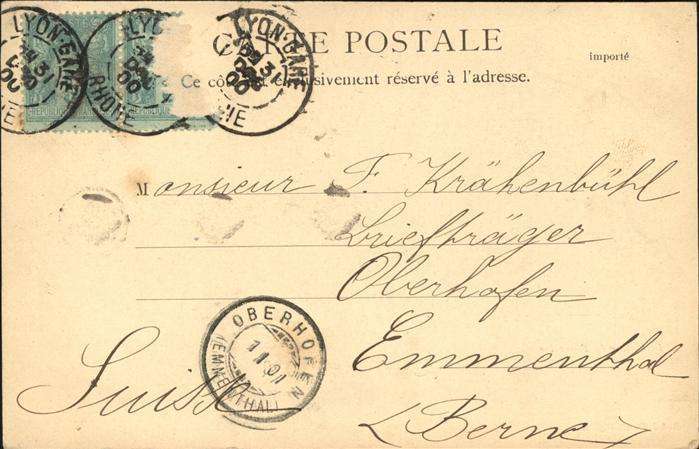 CARTE POSTALE
importé
Ce côté est exclusivement réservé à l'adresse.
LYON-GARE
31
DÉC
00
RHONE
LYON
31
DÉC
00
RHONE
LYON-GARE
31
DÉC
00
RHONE
Monsieur F. Krähenbühl
Briefträger
Oberhofen
Emmenthal
Suisse (Berne)
OBERHOFEN
1 I 01
(EMMENTHAL)